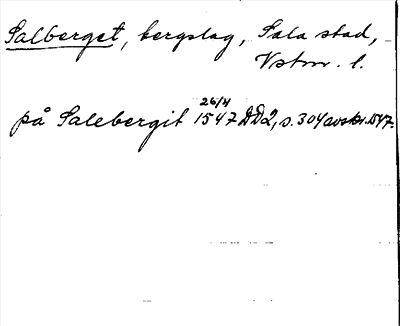 Salberget, bergslag, Sala stad,
Vstm. l.
26/4
på Salebergit 1547 DD2, s. 304 avskr. 1547.